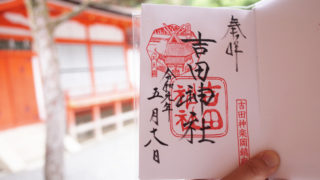 奉拝
吉田神社
令和元年
五月十八日
吉田神社
吉田神楽岡鎮